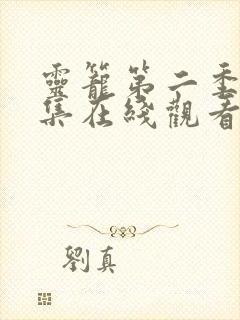 靈籠第二季
集在綫觀看
劉真